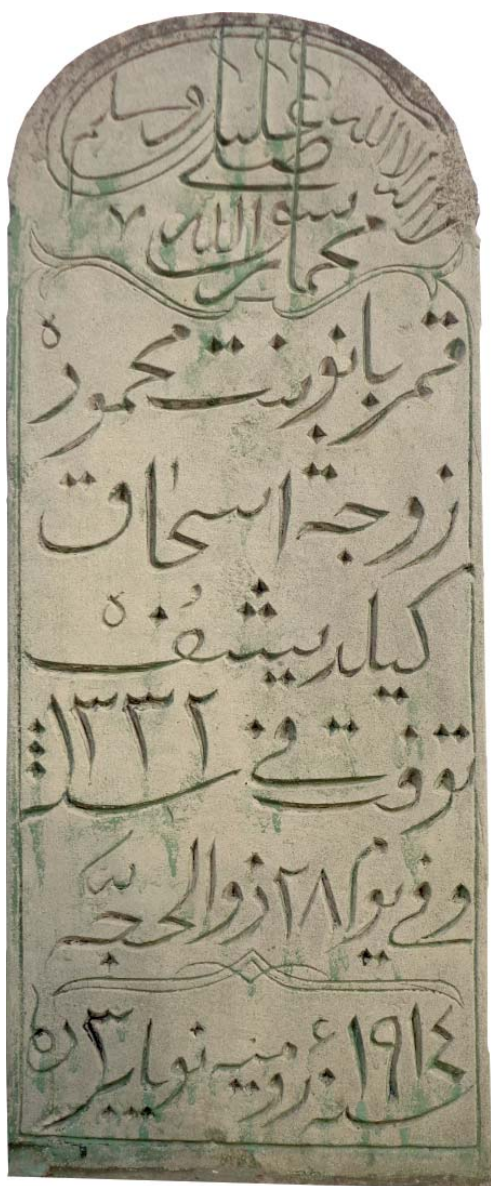 لا اله الا الله
محمد رسول الله
صلى الله عليه وسلم
قمر بانو بنت محمود
زوجة اسحاق
كيلديشف
توفت في سنة ١٣٣٢
وفي يوم ٢٨ ذوالحجه
١٩١٤ سنهٔ روميه نويابر ٣ ده